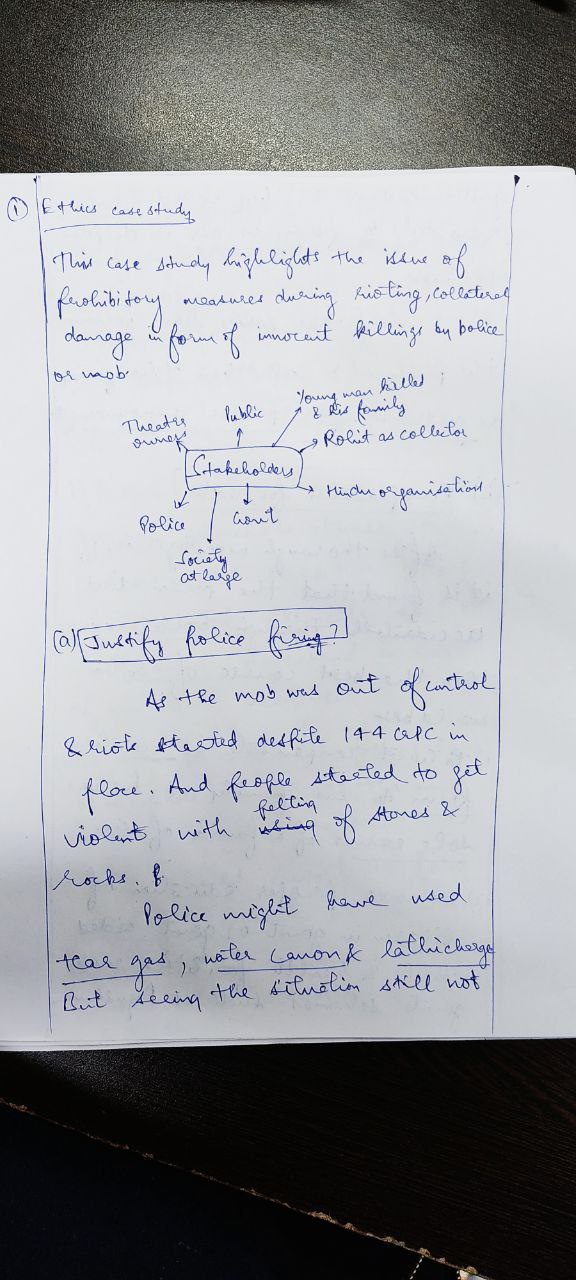 ① Ethics case study
This case study highlights the issue of
prohibitory measures during rioting, collateral
damage in form of innocent killings by police
or mob.
Young man killed
& his family
Public
Theatre
owners
Rohit as collector
Stakeholders
Hindu organisations
Police
Govt
Society
at large
(a) Justify police firing?
As the mob was out of control
& riots started despite 144 CrPC in
place. And people started to get
pelting
violent with using of stones &
rocks.
Police might have used
tear gas, water canon & lathicharge
But seeing the situation still not